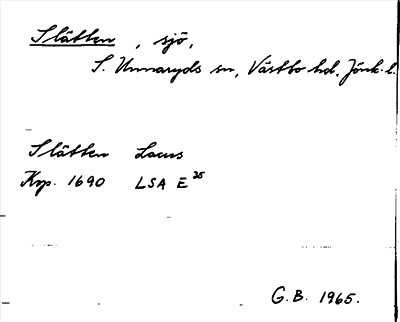 Slätten, sjö,
S. Unnaryds sn, Västbo hd, Jönk. l.
Slätten Lacus
Kop. 1690 LSA E 35
G.B. 1965.